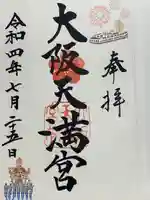 奉拝
大阪天満宮
令和四年七月二五日